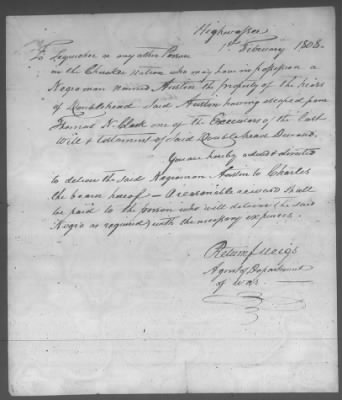 Highwassee
1st February 1808.
To Sequechee or any other Person
in the Cherokee Nation who may have in possession a
Negroman named Austin the property of the heirs
of Doublehead Said Austin having escaped from
Thomas N. Clark one of the Executors of the last
Will & testament of Said Doublehead Deceased.
You are hereby ordered & directed
to deliver the said Negroman Austin to Charles
the bearer hereof — A reasonable reward shall
be paid to the person who will deliver the said
Negro as required, with the necessary expenses.
Return J. Meigs
Agent of Department
of War